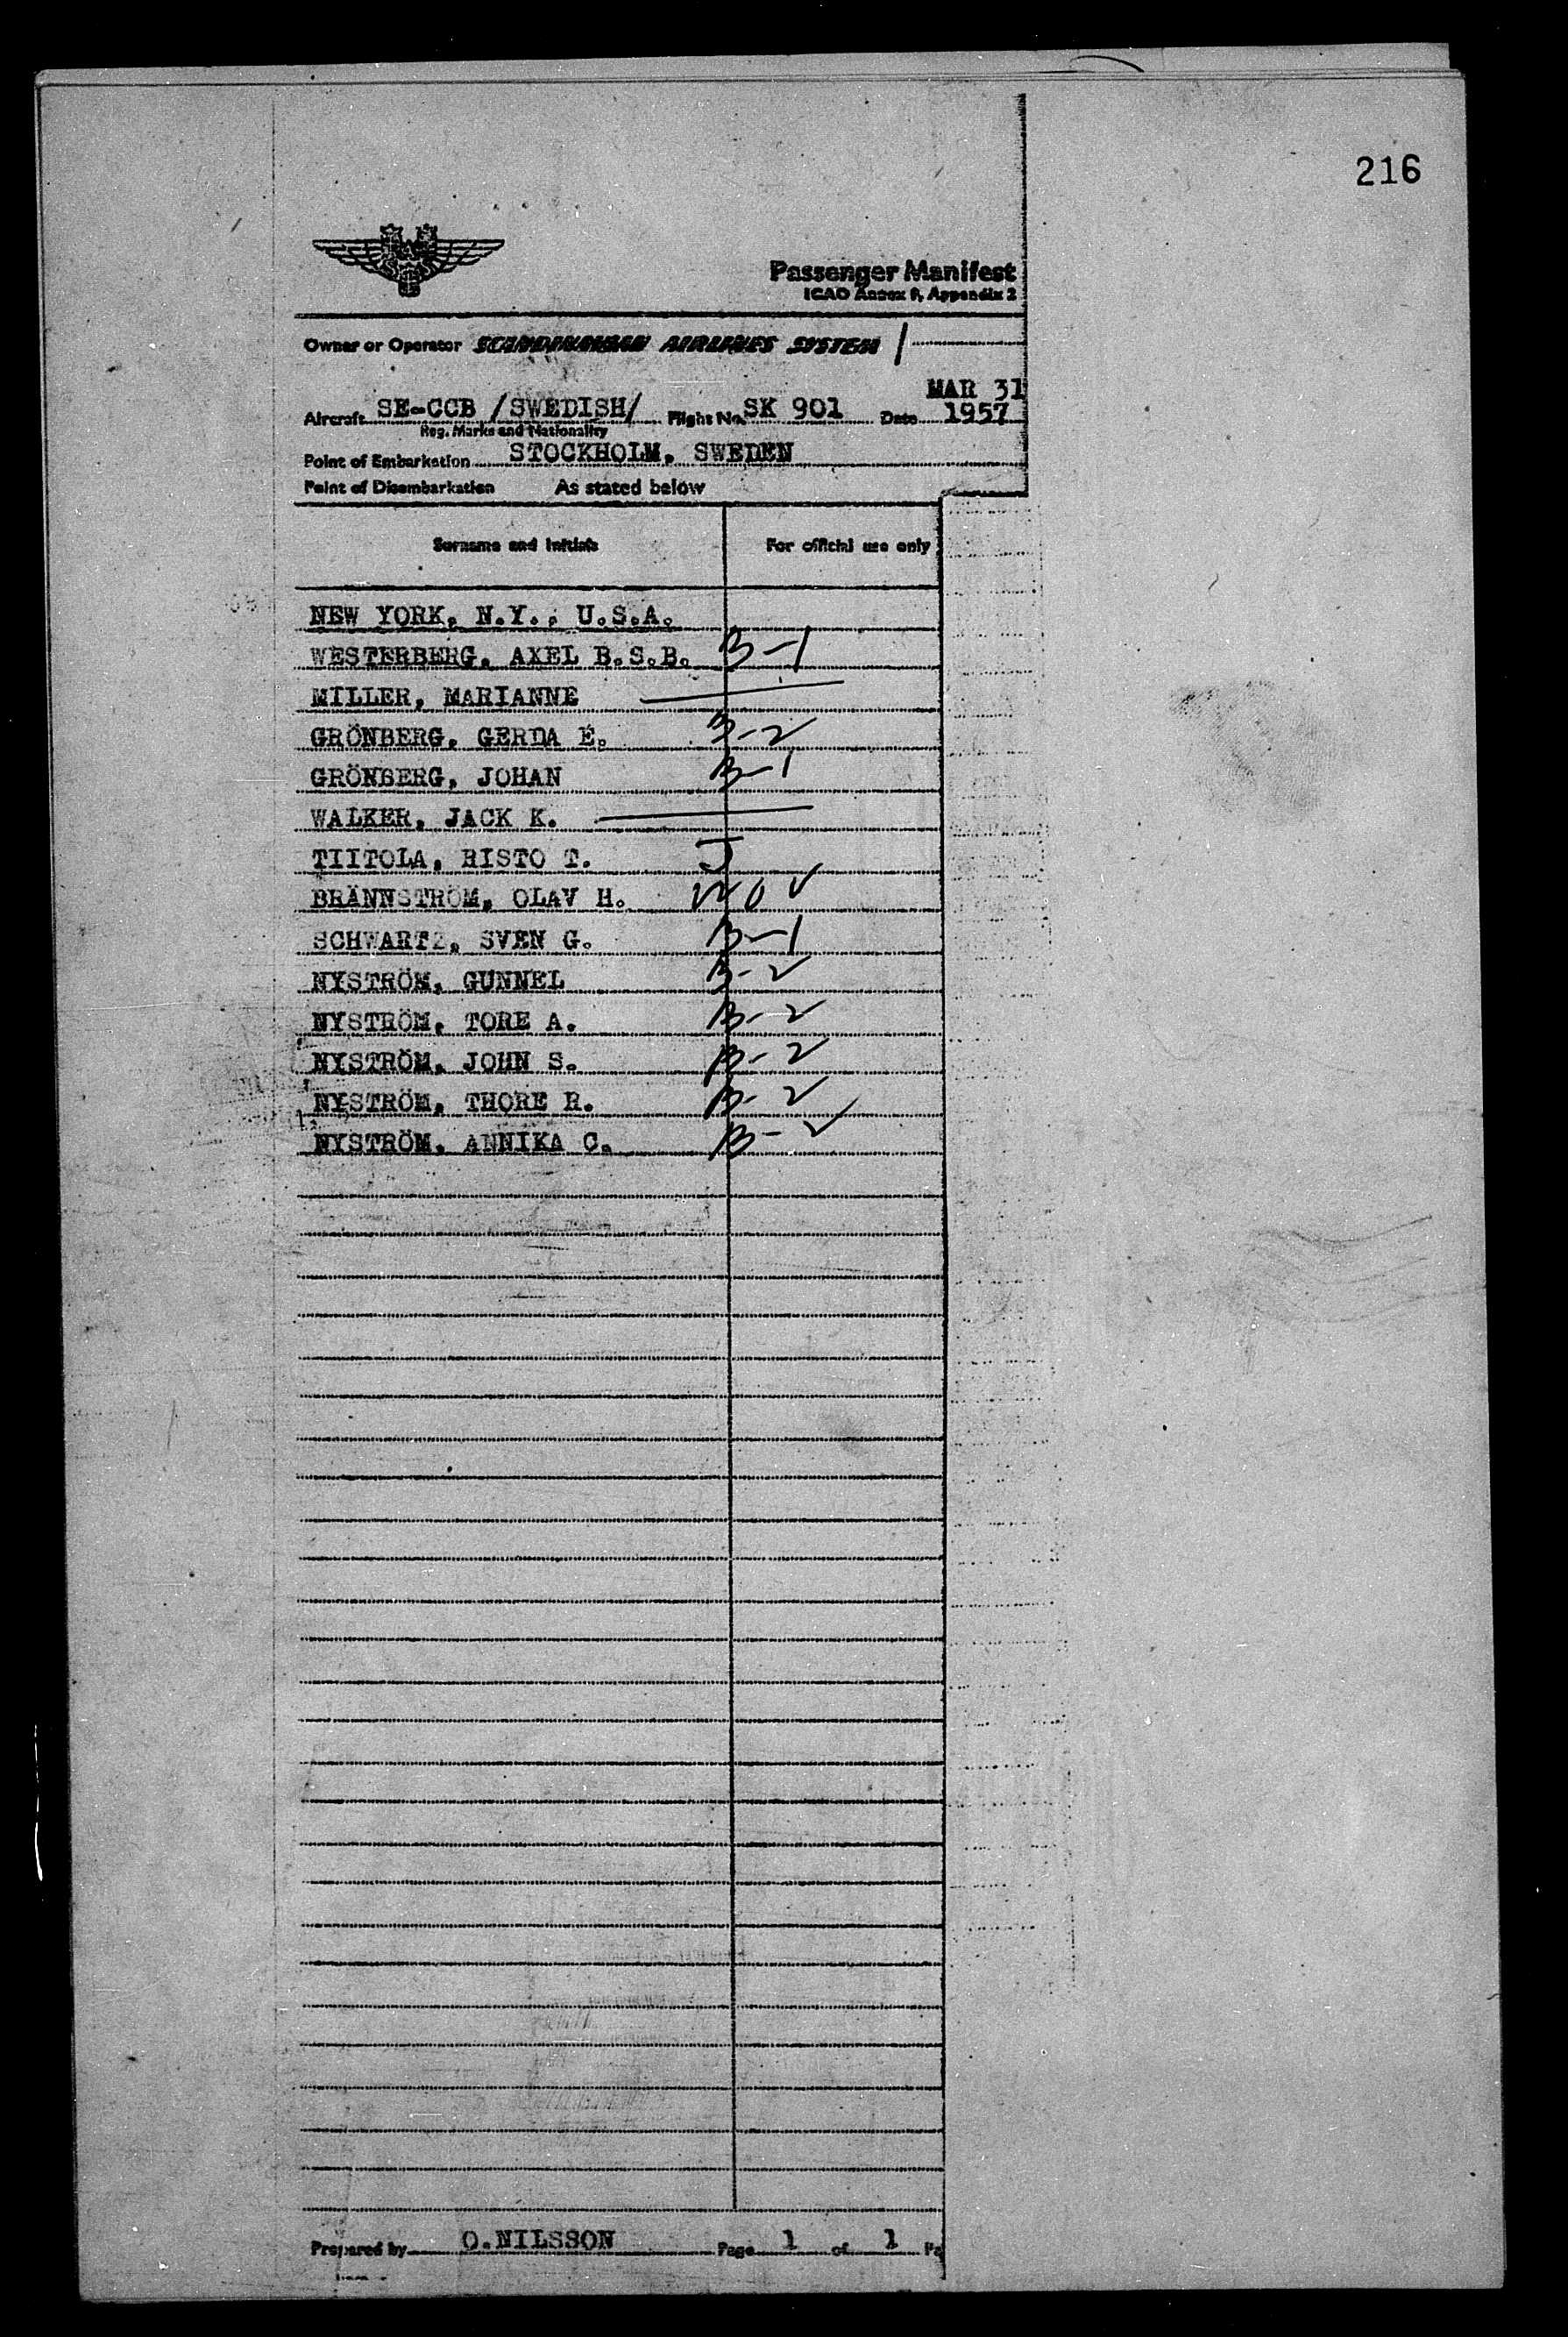 216
Passenger Manifest
ICAO Annex 9, Appendix 2
Owner or Operator SCANDINAVIAN AIRLINES SYSTEM
MAR 31
Aircraft SE-CCB /SWEDISH/ Flight No. SK 901 Date 1957
Reg. Marks and Nationality
Point of Embarkation STOCKHOLM, SWEDEN
Point of Disembarkation As stated below
Surname and Initials For official use only
NEW YORK, N.Y., U.S.A.
WESTERBERG, AXEL B.S.B. B-1
MILLER, MARIANNE
GRÖNBERG, GERDA E. B-2
GRÖNBERG, JOHAN B-1
WALKER, JACK K.
TIITOLA, RISTO T. J
BRÄNNSTRÖM, OLAV H.
SCHWARTZ, SVEN G. B-1
NYSTRÖM, GUNNEL B-2
NYSTRÖM, TORE A. B-2
NYSTRÖM, JOHN S. B-2
NYSTRÖM, THORE R. B-2
NYSTRÖM, ANNIKA C. B-2
Prepared by O.NILSSON Page 1 of 1